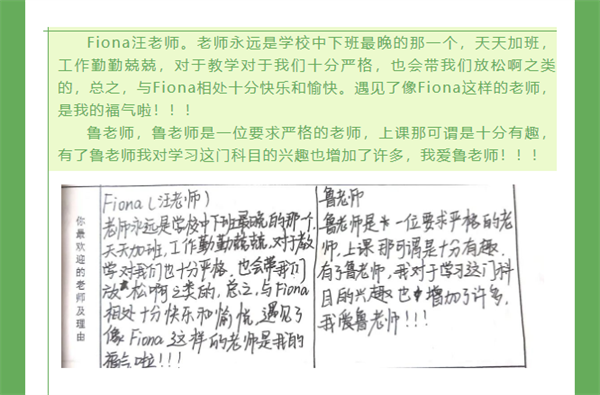 Fiona汪老师。老师永远是学校中下班最晚的那一个，天天加班，
工作勤勤兢兢，对于教学对于我们十分严格，也会带我们放松啊之类
的，总之，与Fiona相处十分快乐和愉快。遇见了像Fiona这样的老师，
是我的福气啦！！！
鲁老师，鲁老师是一位要求严格的老师，上课那可谓是十分有趣，
有了鲁老师我对学习这门科目的兴趣也增加了许多，我爱鲁老师！！！
你最欢迎的老师及理由
Fiona（汪老师）
老师永远是学校中下班最晚的那一个，
天天加班，工作勤勤兢兢，对于教
学对于我们也十分严格，也会带我们
放松啊之类的，总之，与Fiona
相处十分快乐和愉悦，遇见了
像Fiona这样的老师是我的
福气啦!!!
鲁老师
鲁老师是一位要求严格的老
师，上课那可谓是十分有趣，
有了鲁老师，我对于学习这门科
目的兴趣也增加了许多，
我爱鲁老师!!!